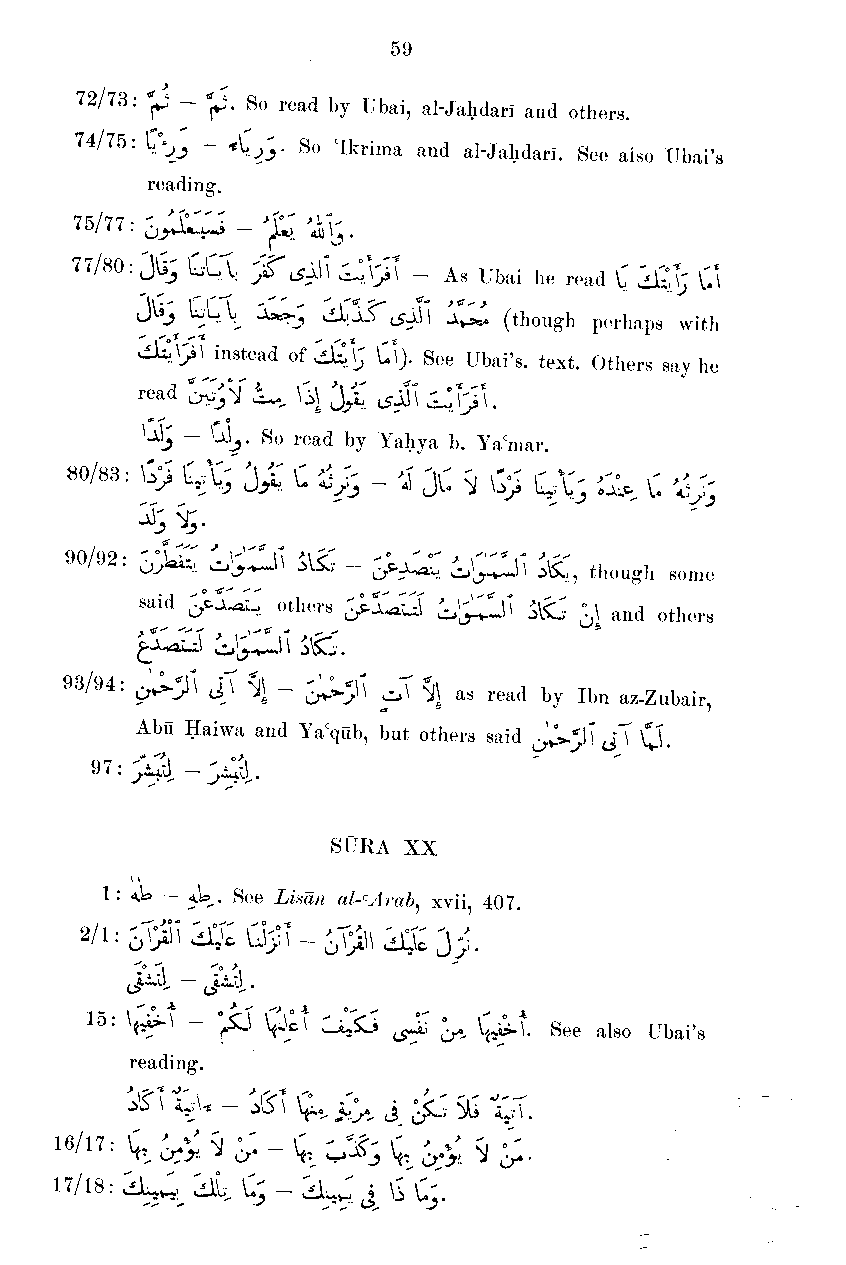 59
72/73: ثُمَّ – ثَمَّ. So read by Ubai, al-Jaḥdarī and others.
74/75: وَرِئْيًا – وَرِيَاءً. So ʿIkrima and al-Jaḥdarī. See also Ubai's
reading.
75/77: فَسَيَعْلَمُونَ – وَٱللّٰهُ يَعْلَمُ.
77/80: أَفَرَأَيْتَ ٱلَّذِى كَفَرَ بِآيَاتِنَا وَقَالَ – As Ubai he read أَمَا رَأَيْتَكَ يَا
مُحَمَّدُ ٱلَّذِى كَذَّبَكَ وَجَحَدَ بِآيَاتِنَا وَقَالَ (though perhaps with
أَفَرَأَيْتَكَ instead of أَمَا رَأَيْتَكَ). See Ubai's. text. Others say he
read أَفَرَأَيْتَ ٱلَّذِى يَقُولُ إِذَا مِتُّ لَأُوتَيَنَّ.
وَلَدًا – وِلْدًا. So read by Yaḥya b. Yaʿmar.
80/83: وَنَرِثُهُ مَا يَقُولُ وَيَأْتِينَا فَرْدًا – وَنَرِثُهُ مَا عِنْدَهُ وَيَأْتِينَا فَرْدًا لَا مَالَ لَهُ
وَلَا وَلَدَ.
90/92: تَكَادُ ٱلسَّمٰوَاتُ يَتَفَطَّرْنَ – يَكَادُ ٱلسَّمٰوَاتُ يَنْصَدِعْنَ, though some
said يَتَصَدَّعْنَ others إِنْ تَكَادُ ٱلسَّمٰوَاتُ لَتَتَصَدَّعْنَ and others
تَكَادُ ٱلسَّمٰوَاتُ لَتَتَصَدَّعُ.
93/94: إِلَّا آتِى ٱلرَّحْمٰنِ – إِلَّا آتٍ ٱلرَّحْمٰنَ as read by Ibn az-Zubair,
Abū Ḥaiwa and Yaʿqūb, but others said لَمَّا آتِى ٱلرَّحْمٰنِ.
97: لِتُبَشِّرَ – لِتُبْشِرَ.
SŪRA XX
1: طٰهٰ – طِهِ. See Lisān al-ʿArab, xvii, 407.
2/1: أَنْزَلْنَا عَلَيْكَ ٱلْقُرْآنَ – نُزِّلَ عَلَيْكَ القُرْآنُ.
لِتَشْقَى – لِتُشْقَى.
15: أُخْفِيهَا – أُخْفِيهَا مِنْ نَفْسِى فَكَيْفَ أُعْلِنُهَا لَكُمْ. See also Ubai's
reading.
ءَاتِيَةٌ أَكَادُ – آتِيَةٌ فَلَا تَكُنْ فِى مِرْيَةٍ مِنْهَا أَكَادُ.
16/17: مَنْ لَا يُؤْمِنُ بِهَا – مَنْ لَا يُؤْمِنُ بِهَا وَكَذَّبَ بِهَا.
17/18: وَمَا تِلْكَ بِيَمِينِكَ – وَمَا ذَا فِى يَمِينِكَ.